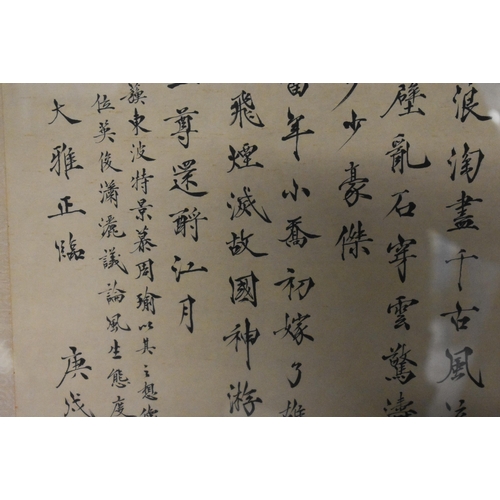 浪淘盡千古風流
壁亂石穿雲驚濤
多少豪傑
當年小喬初嫁了雄
飛煙滅故國神游
尊還酹江月
東波特景慕周瑜以其之想
位英俊瀟灑議論風生態度
大雅正臨 庚戌